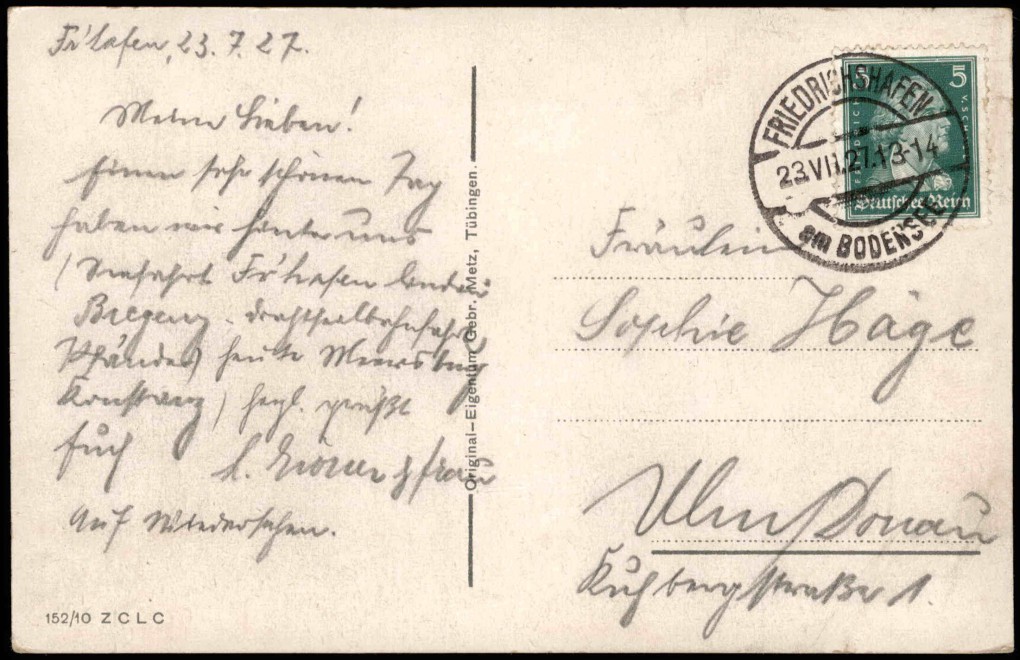 Fr'hafen, 23. 7. 27.
Meine Lieben!
Einen sehr schönen Tag
haben wir hinter uns
(Seefahrt Fr'hafen Lindau
Bregenz - Drahtseilbahnfahrt
Pfänder) heute Meersburg
Konstanz) herzl. grüßt
Euch
& Frau
Auf Wiedersehen.
152/10 Z C L C
Original-Eigentum Gebr. Metz, Tübingen.
FRIEDRICHSHAFEN
23.VII.27.13-14
am BODENSEE
5 5
Deutsches Reich
Fräulein
Sophie Häge
Ulm/Donau
Kuhbergstraße 1.